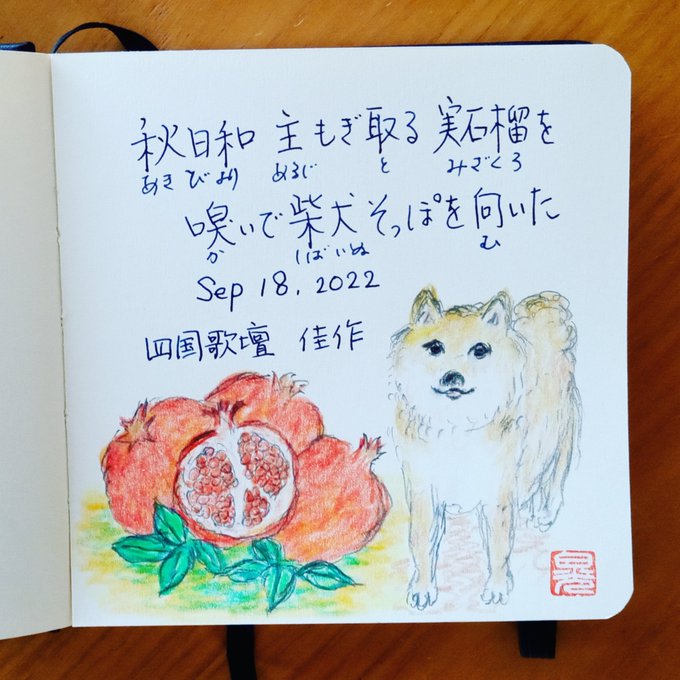 秋日和 主もぎ取る 実石榴を
あきびより あるじ と みざくろ
嗅いで柴犬そっぽを向いた
か しばいぬ む
Sep 18, 2022
四国歌壇 佳作